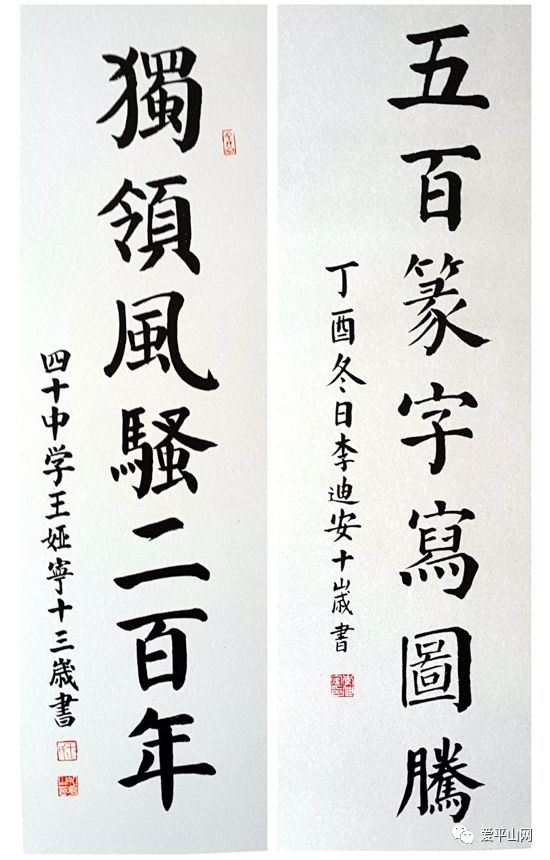 五百篆字寫圖騰
丁酉冬日李迪安十歲書
獨領風騷二百年
四十中学王娅寧十三歲書
爱平山网